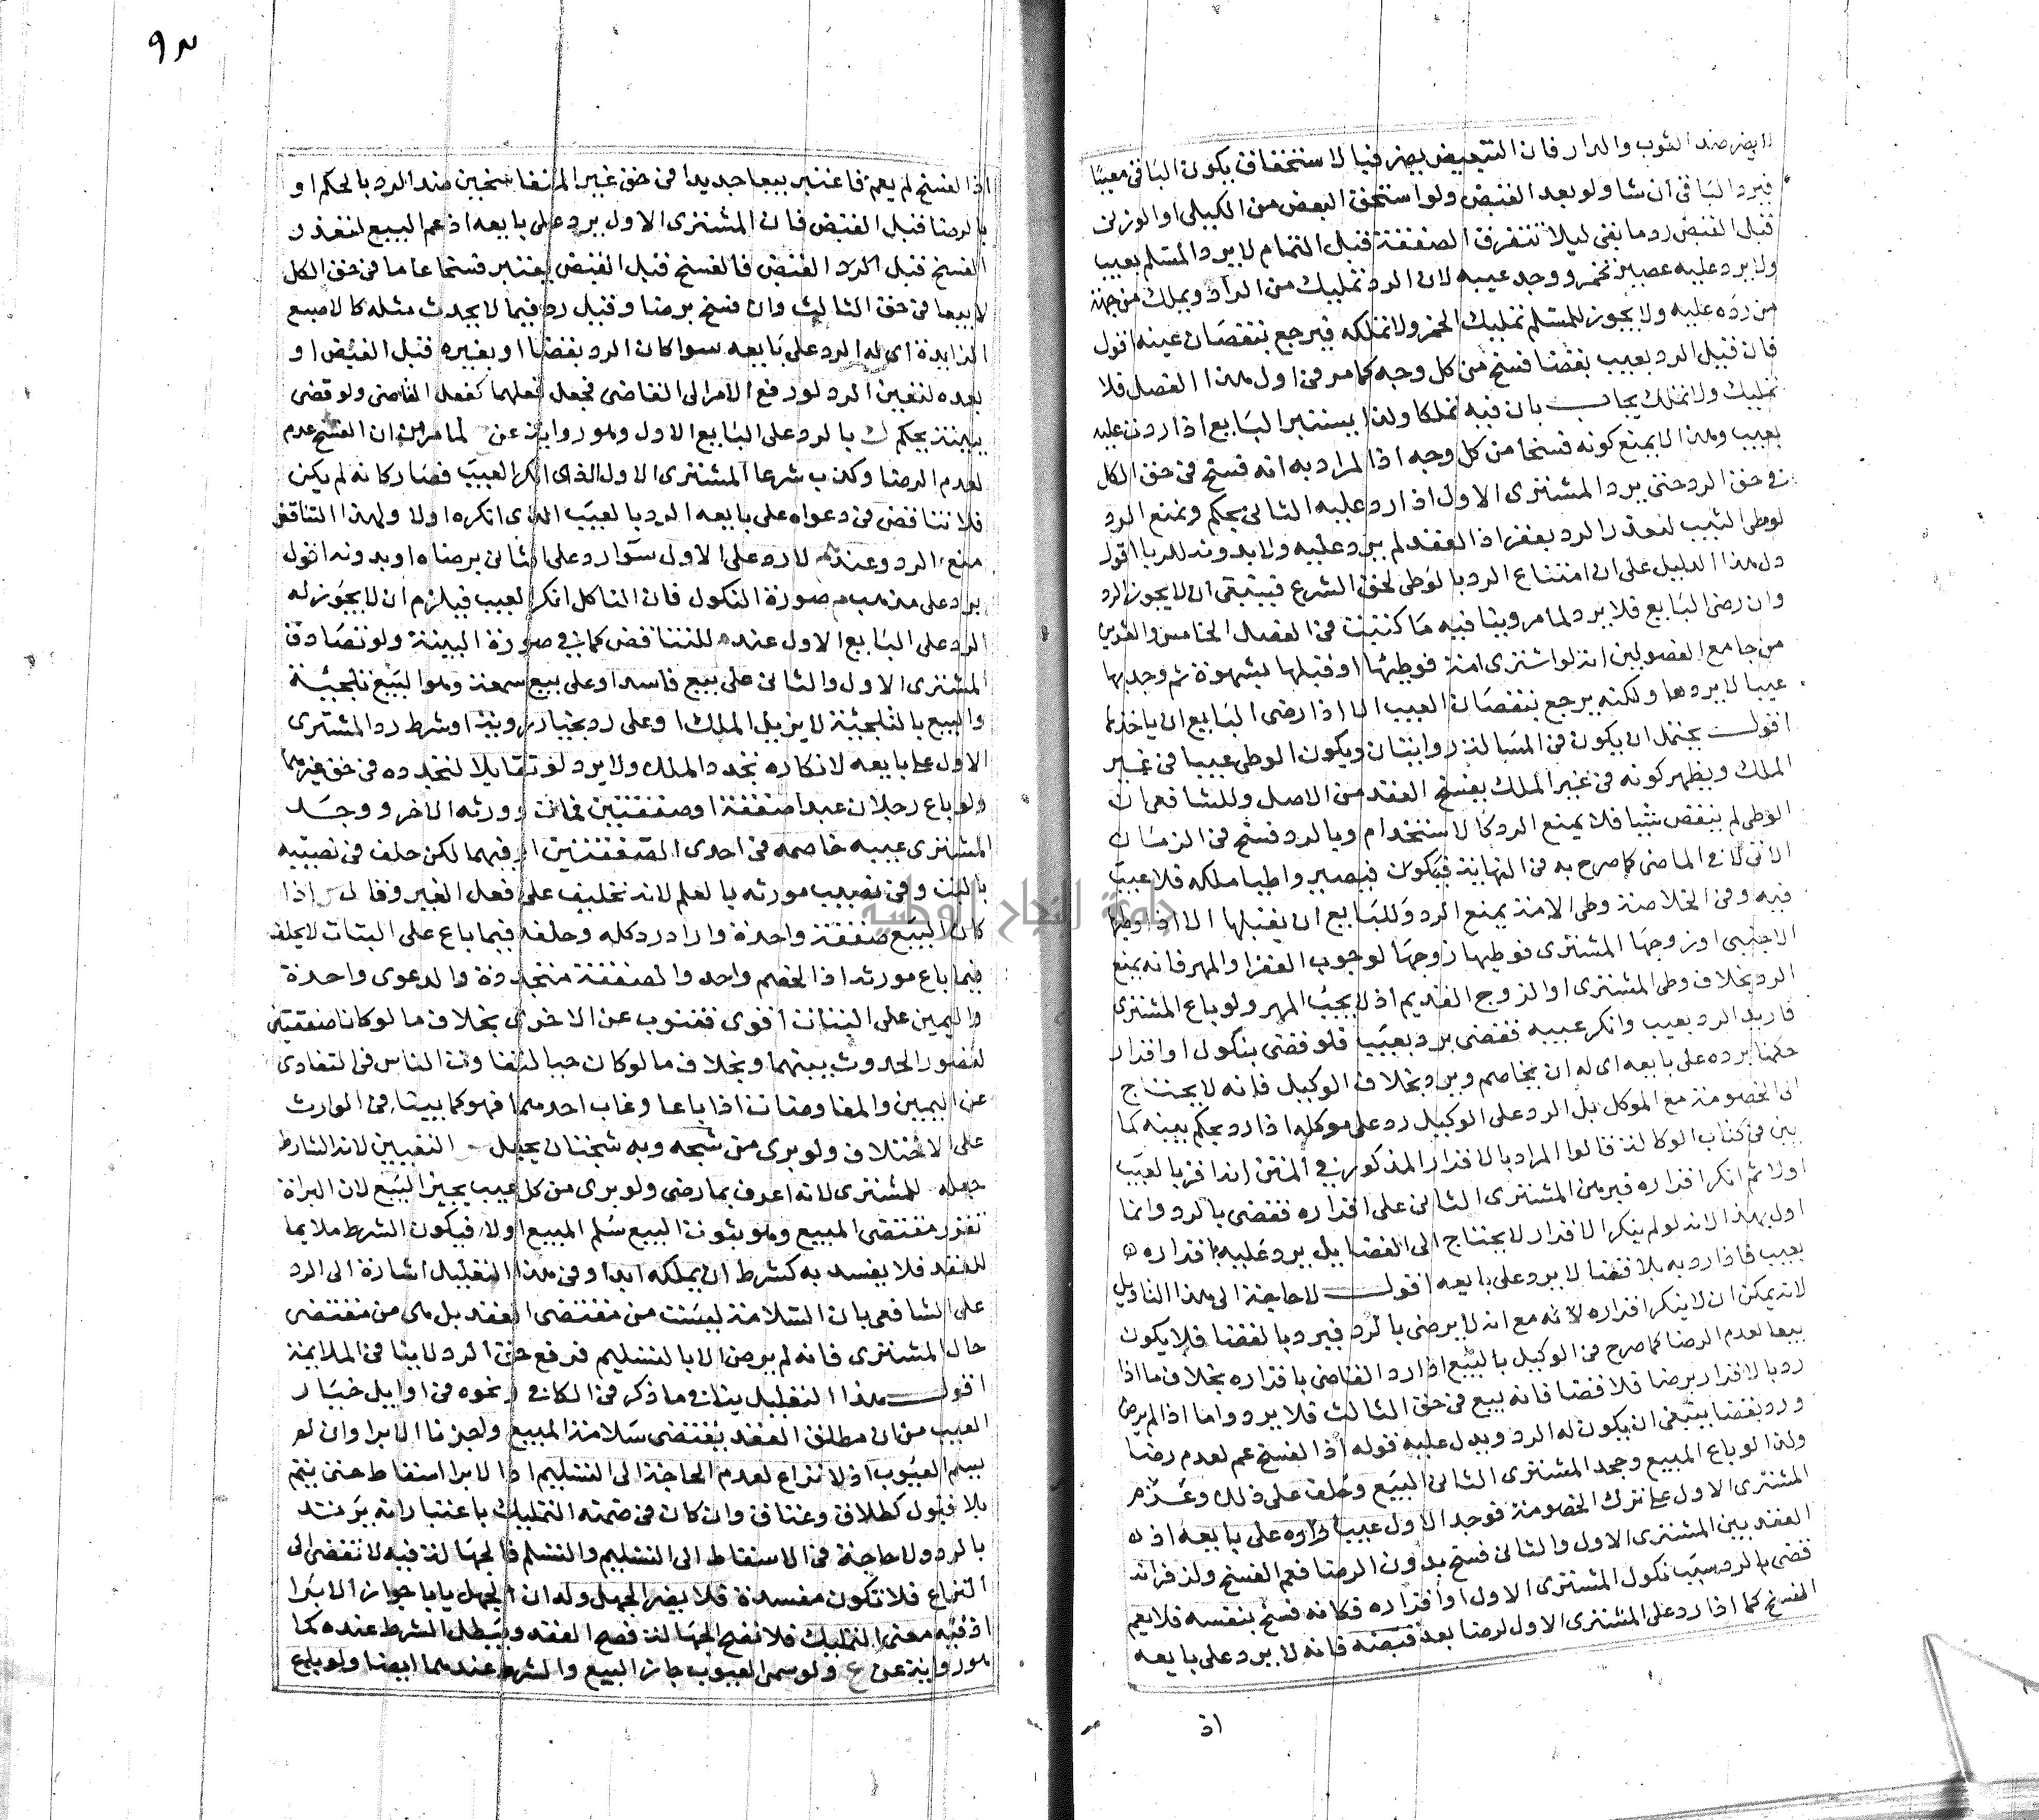 لا يضر ضد الثوب والدار فان التبعيض يضر فيها لاستحقاق يكون الباقي معيبا
فيرد الباقي ان شا ولو بعد القبض ولو استحق البعض من الكيلي او الوزني
قبل القبض رد ما بقي ليلا تتفرق الصفقة قبل التمام لا يرد المسلم بعيب
ولا يرد عليه عصير تخمر ووجد عيبه لان الرد تمليك من الراد وتملك من جهة
من رده عليه ولا يجوز للمسلم تمليك الخمر ولا تملكه فيرجع بنقصان عيبه اقول
فان قيل الرد بعيب بقضا فسخ من كل وجه كما مر في اول هذا الفصل فلا
تمليك ولا تملك يجاب بان فيه تملكا ولذا يستبرا البايع اذا ردت عليه
بعيب وهذا لا يمنع كونه فسخا من كل وجه اذ المراد به انه فسخ في حق الكل
في حق الرد حتى يرد المشتري الاول اذا رد عليه الثاني بحكم ويمنع الرد
لوطى الثيب لتعذر الرد بعقر اذ العقد لم يرد عليه ولا بدونه للربا اقول
دل هذا الدليل على ان امتناع الرد بالوطى لحق الشرع فينبغي ان لا يجوز الرد
وان رضي البايع فلا يرد لما مر وينافيه ما كتبت في الفصل الخامس والعشرين
من جامع الفصولين انه لو اشترى امة فوطئها او قبلها بشهوة ثم وجد بها
عيبا لا يردها ولكنه يرجع بنقصان العيب الا اذا رضي البايع ان ياخذها
اقول يحتمل ان يكون في المسالة روايتان ويكون الوطى عيبا في غير
الملك ويظهر كونه في غير الملك بفسخ العقد من الاصل وللشافعي ان
الوطى لم ينقص شيا فلا يمنع الرد كالاستخدام وبالرد فسخ في الزمان
الاتي لا في الماضي كما صرح به في النهاية فيكون فيصير واطيا ملكه فلا عيب
فيه وفي الخلاصة وطى الامة يمنع الرد وللبايع ان يقبلها الا اذا وطيها
الاجنبي او زوجها المشتري فوطيها زوجها لوجوب العقر او المهر فانه يمنع
الرد بخلاف وطى المشتري او الزوج القديم اذ لا يجب المهر ولو باع المشتري
فاريد الرد بعيب وانكر عيبه فقضي برد بعيب فلو قضي بنكول او اقرار
حكما يرده على بايعه اي له ان يخاصم ويرد بخلاف الوكيل فانه لا يحتاج
الى الخصومة مع الموكل بل الرد على الوكيل رد على موكله اذا رد بحكم ببينة كما
بين في كتاب الوكالة قالوا المراد بالاقرار المذكور في المتن انه اقر بالعيب
اولا ثم انكر اقراره فبرهن المشتري الثاني على اقراره فقضي بالرد وانما
اول بهذا لانه لو لم ينكر الاقرار لا يحتاج الى القضا بل يرد عليه باقراره
بعيب فاذا رد به بلا قضا لا يرد على بايعه اقول لا حاجة الى هذا التاويل
لانه يمكن ان لا ينكر اقراره لانه مع انه لا يرضى بالرد فيرد بالقضا فلا يكون
بيعا لعدم الرضا كما صرح في الوكيل بالبيع اذا رد القاضي باقراره بخلاف ما اذا
رد بالاقرار برضا فلا قضا فانه بيع في حق الثالث فلا يرد واما اذا لم يرض
ورد بقضا ينبغي ان يكون له الرد ويدل عليه قوله اذ الفسخ عم لعدم رضا
ولذا لو باع المبيع وجحد المشتري الثاني البيع وحلف على ذلك وعزم
المشتري الاول على ترك الخصومة فوجد الاول عيبا رده على بايعه اذ
العقد بين المشتري الاول والثاني فسخ بدون الرضا فعم الفسخ ولذ فر انه
قضي بالرد بسبب نكول المشتري الاول او اقراره فكانه فسخ بنفسه فلا يعم
الفسخ كما اذا رد على المشتري الاول لرضا بعد قبضه فانه لا يرد على بايعه
اذ
اذ الفسخ لم يعم فاعتبر بيعا جديدا في حق غير المتفاسخين ضد الرد بالحكم او
بالرضا قبل القبض فان المشتري الاول يرد على بايعه اذ عم البيع لتعذر
الفسخ قبل الرد القبض فالفسخ قبل القبض يعتبر فسخا عاما في حق الكل
لا بيعا في حق الثالث وان فسخ برضا وقيل رد فيما لا يحدث مثله كالاصبع
الزايدة اي له الرد على بايعه سوا كان الرد بقضا او بغيره قبل القبض او
بعده لتعين الرد لو رفع الامر الى القاضي فجعل فعلهما كفعل القاضي ولو قضي
ببينة يحكم بالرد على البايع الاول وهو رواية عن لما مر من ان الفسخ عم
لعدم الرضا وكذب شرعا المشتري الاول الذي انكر العيب فصار كانه لم يكن
فلا تناقض في دعواه على بايعه الرد بالعيب الذي انكره اولا ولهذا التناقض
منع الرد وعند لا رد على الاول سوا رد على الثاني برضاه او بدونه اقول
يرد على مذهب صورة النكول فان الناكل انكر العيب فيلزم ان لا يجوز له
الرد على البايع الاول عنده للتناقض كما في صورة البينة ولو تصادق
المشتري الاول والثاني على بيع فاسد او على بيع سمعة وهو البيع تلجئة
والبيع بالتلجئة لا يزيل الملك او على رد بخيار رويتة او شرط رد المشتري
الاول على بايعه لانكاره تجدد الملك ولا يرد لو تقايلا لتجدده في حق غيرهما
ولو باع رجلان عبدا صفقة او صفقتين فمات وورثه الاخر ووجد
المشتري عيبه خاصمه في احدى الصفقتين او فيهما لكن حلف في نصيبه
بالبت وفي نصيب مورثه بالعلم لانه تحليف على فعل الغير وقال اذا
كان البيع صفقة واحدة واراد رد كله وحلفه فيما باع على البتات لا يحلف
فيما باع مورثه اذ الخصم واحد والصفقة متحدة والدعوى واحدة
واليمين على البتات اقوى فتنوب عن الاخرى بخلاف ما لو كانا صفقتين
لتصور الحدوث بينهما وبخلاف ما لو كان حيا لتفاوت الناس في التفادي
عن اليمين والمفاوضات اذا باعا وغاب احدهما فهو كما بينا في الوارث
على الاختلاف ولو برى من شجه وبه شجتان يجعل التعيين لانه الشارط
جعله للمشتري لانه اعرف بما رضي ولو برى من كل عيب يجيز البيع لان البراة
تقرر مقتضى المبيع وهو ثبوت البيع سلم المبيع اولا فيكون الشرط ملايما
للعقد فلا يفسد به كشرط ان يملكه ابدا وفي هذا التعليل اشارة الى الرد
على الشافعي بان السلامة ليست من مقتضى العقد بل هي من مقتضى
حال المشتري فانه لم يرض الا بالتسليم فرفع حق الرد لا ينافي الملايمة
اقول هذا التعليل ينافي ما ذكر في الكافي ونحوه في اوايل خيار
العيب من ان مطلق العقد يقتضي سلامة المبيع ولجزنا الابرا وان لم
يسم العيوب اذ لا نزاع لعدم الحاجة الى التسليم اذ الابرا اسقاط حتى يتم
بلا قبول كطلاق وعتاق وان كان في ضمنه التمليك باعتبار انه يرتد
بالرد ولا حاجة في الاسقاط الى التسليم والتسلم فالجهالة فيه لا تفضي الى
النزاع فلا تكون مفسدة فلا يضر الجهل وله ان الجهل يابا جواز الابرا
اذ فيه معنى التمليك فلا تصح الجهالة فصح العقد ويبطل الشرط عنده كما
هو رواية عن ولو سمى العيوب جاز البيع والشرط عندهما ايضا ولو باع